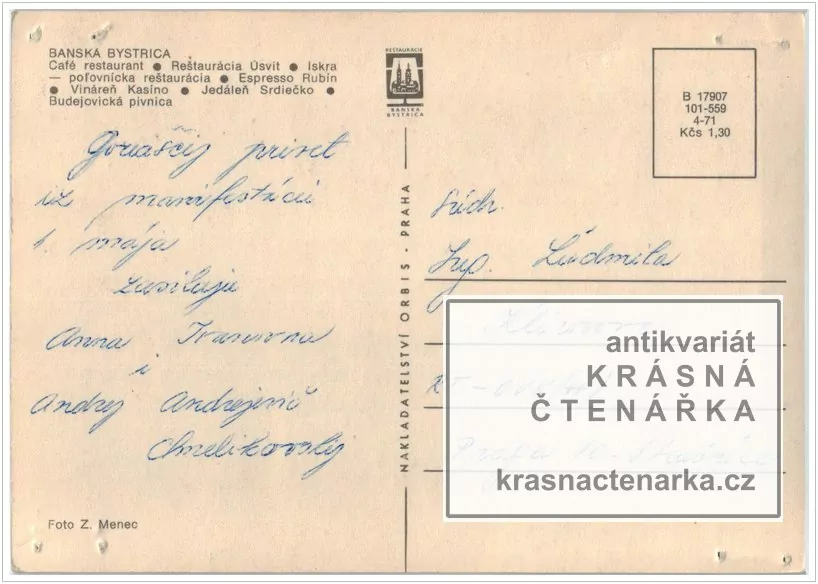 BANSKA BYSTRICA
Café restaurant ● Reštaurácia Úsvit ● Iskra
— poľovnícka reštaurácia ● Espresso Rubín
● Vináreň Kasíno ● Jedáleň Srdiečko ●
Budejovická pivnica
RESTAURÁCIE
BANSKÁ
BYSTRICA
B 17907
101-559
4-71
Kčs 1,30
Goriaščij privet
iz manifestácii
1. mája
zasílajú
Anna Ivanovna
i
Andrej Andrejevič
Chmelikovský
Foto Z. Menec
NAKLADATELSTVÍ ORBIS - PRAHA
Súdr.
Ing. Ľudmila
antikvariát
KRÁSNÁ
ČTENÁŘKA
krasnactenarka.cz